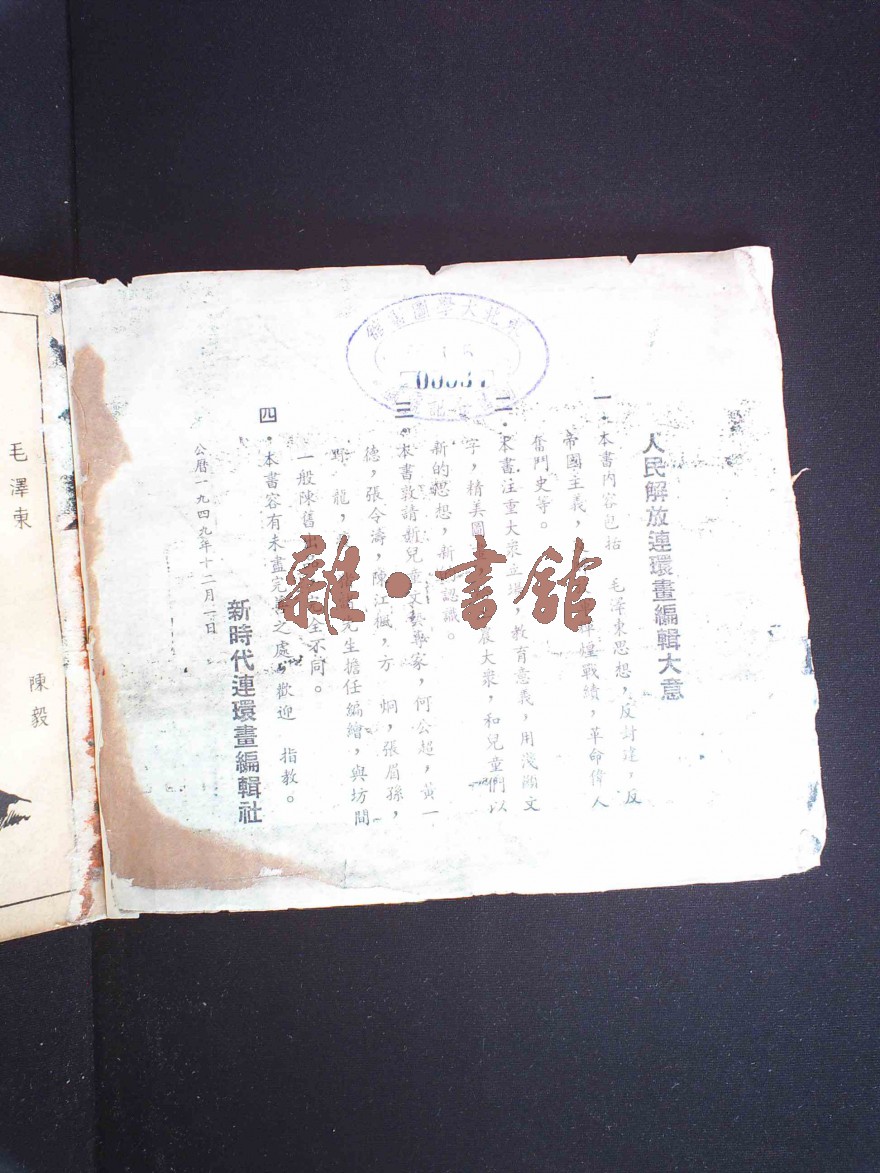 人民解放連環畫編輯大意
一．本書內容包括　毛澤東思想，反封建，反
帝國主義，輝煌戰績，革命偉人
奮鬥史等。
二．本書注重大眾立場，教育意義，用淺顯文
字，精美圖大眾，和兒童們以
新的思想，新認識。
三．本書敦請新兒童家，何公超，黃一
德，張令濤，陳江楓，方　炯，張眉孫，
野　龍，先生擔任編繪，與坊間
一般陳舊全不同。
四．本書容有未盡完之處，歡迎　指教。
新時代連環畫編輯社
公曆一九四九年十二月一日
陳毅
毛澤東
東北大學圖書館
登記
雜·書館